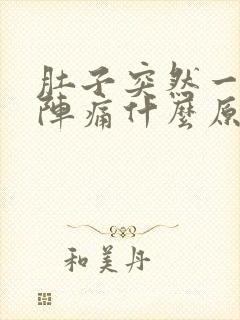 肚子突然一
陣痛什麼原
和美丹